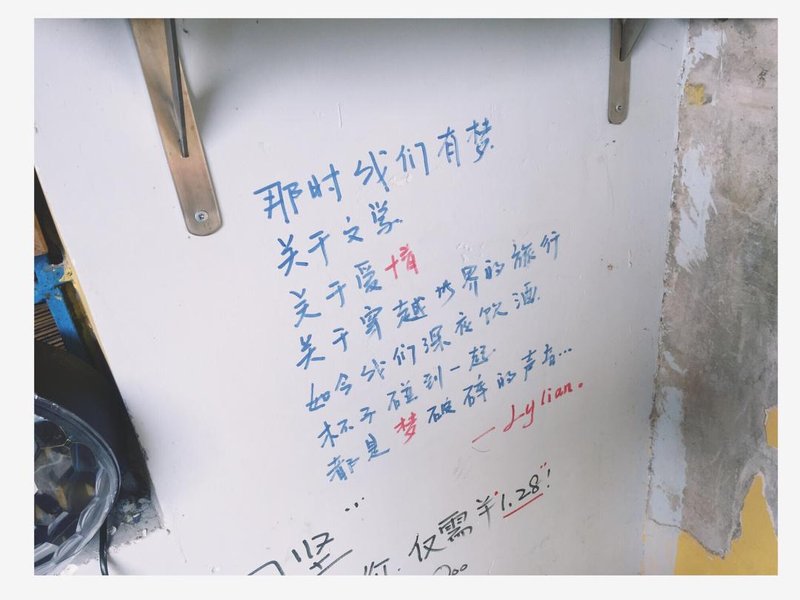 那时我们有梦
关于文学
关于爱情
关于穿越世界的旅行
如今我们深夜饮酒
杯子碰到一起
都是梦破碎的声音...
—Lylian.
...
仅需¥1.28!